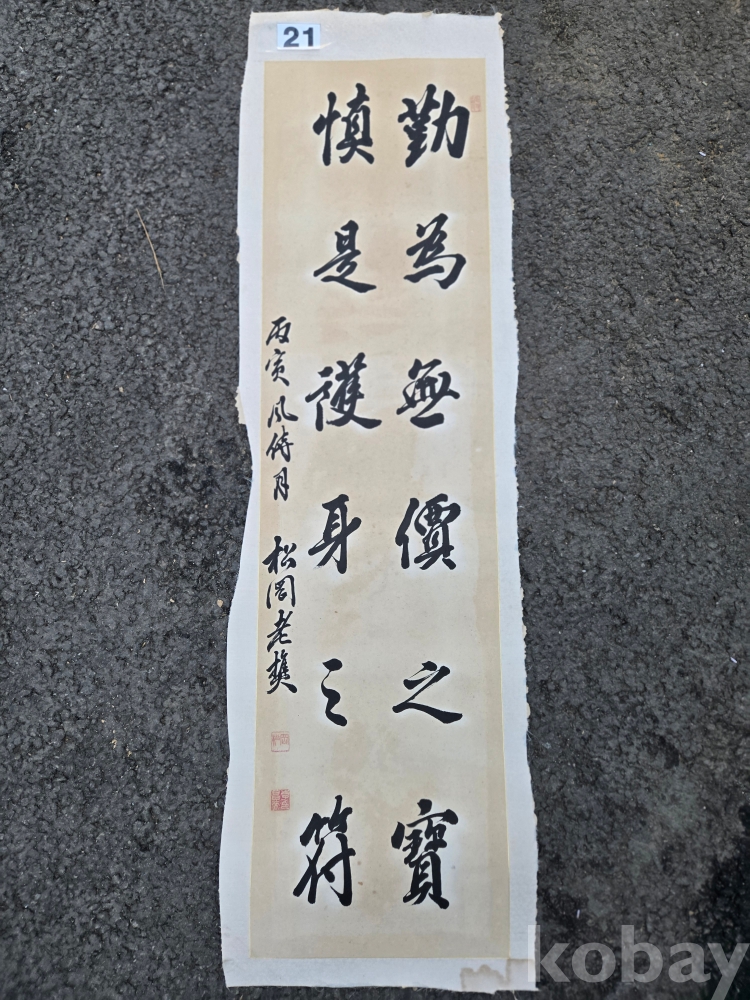 21
勤為無價之寶
慎是護身之符
丙寅風待月 松岡老樵
kobay